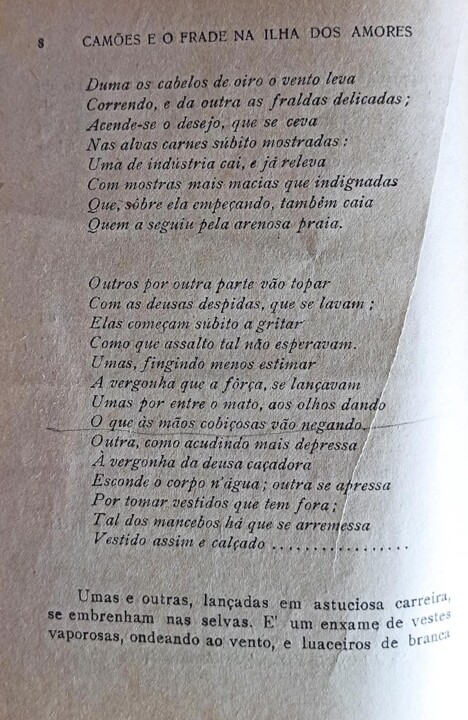 8 CAMÕES E O FRADE NA ILHA DOS AMORES
Duma os cabelos de oiro o vento leva
Correndo, e da outra as fraldas delicadas;
Acende-se o desejo, que se ceva
Nas alvas carnes súbito mostradas:
Uma de indústria cai, e já releva
Com mostras mais macias que indignadas
Que, sôbre ela empeçando, também caia
Quem a seguiu pela arenosa praia.
Outros por outra parte vão topar
Com as deusas despidas, que se lavam;
Elas começam súbito a gritar
Como que assalto tal não esperavam.
Umas, fingindo menos estimar
A vergonha que a fôrça, se lançavam
Umas por entre o mato, aos olhos dando
O que às mãos cobiçosas vão negando.
Outra, como acudindo mais depressa
À vergonha da deusa caçadora
Esconde o corpo n'água; outra se apressa
Por tomar vestidos que tem fora;
Tal dos mancebos há que se arremessa
Vestido assim e calçado .................
Umas e outras, lançadas em astuciosa carreira,
se embrenham nas selvas. E' um enxame de vestes
vaporosas, ondeando ao vento, e luaceiros de branca